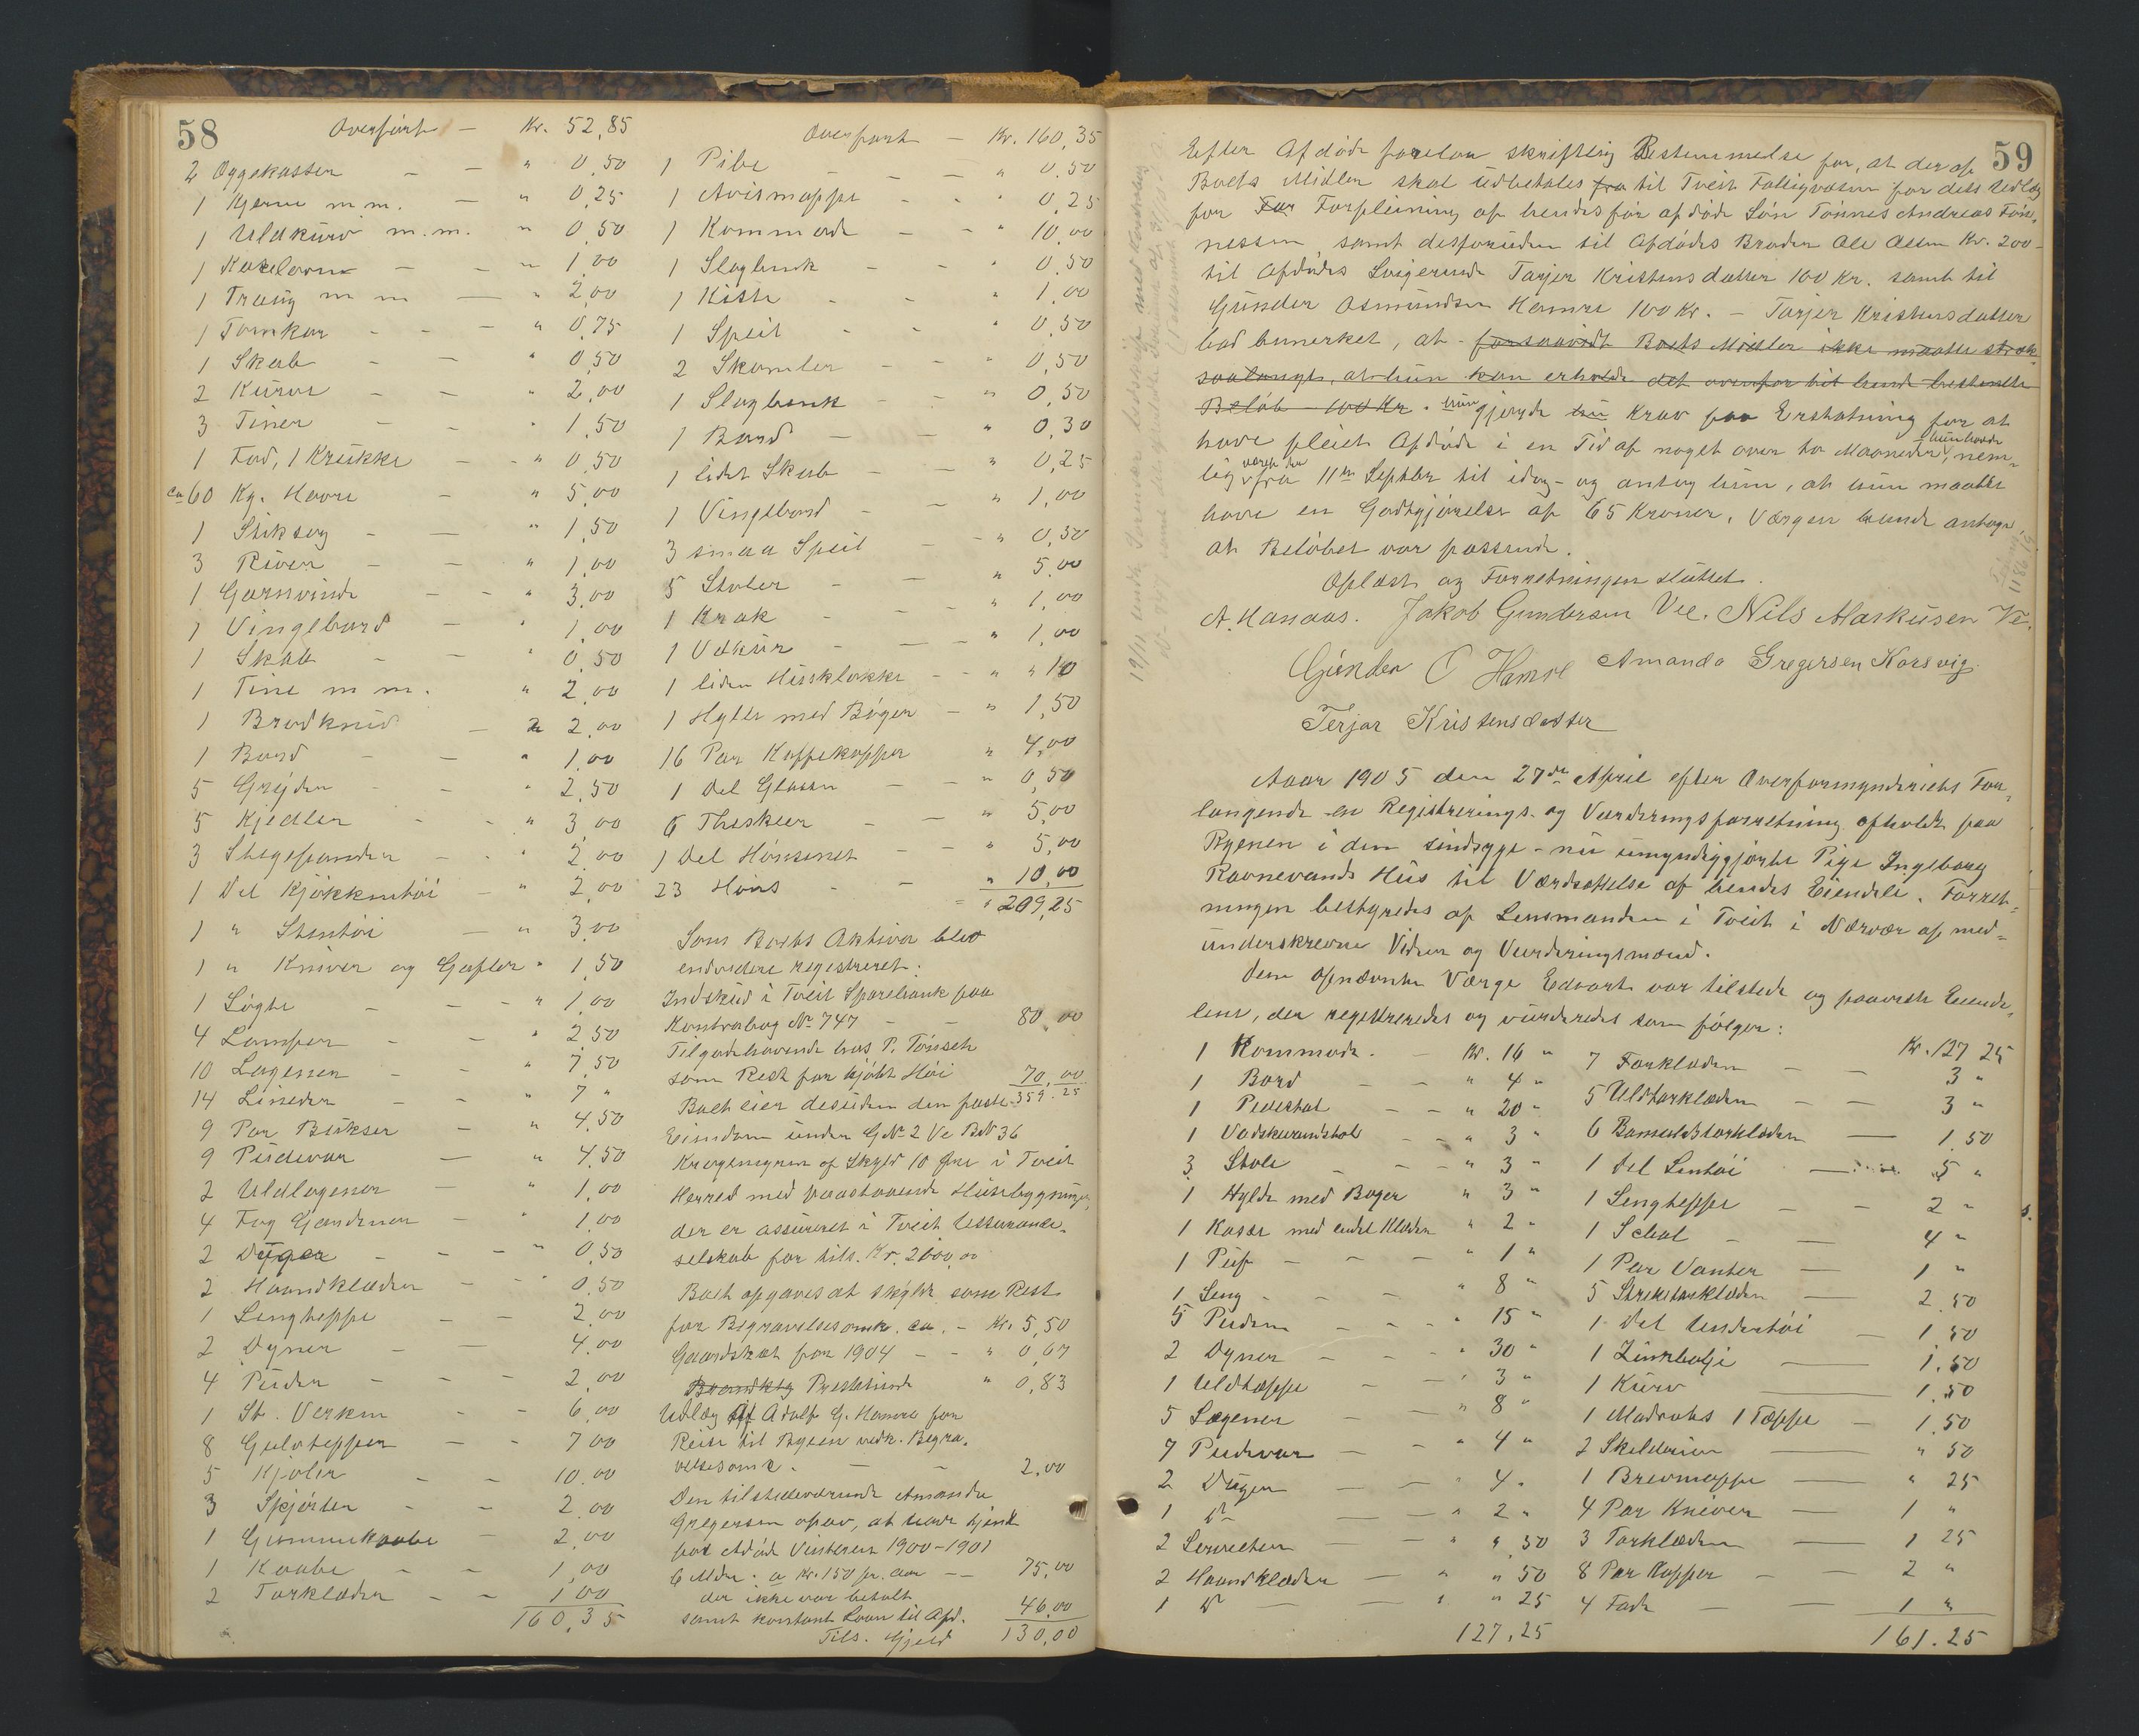 58
Overført - Kr. 52,85
2 Æggekasser - - " 0,50
1 Kjerne m.m. - " 0,25
1 Uldkurv m.m. " 0,50
1 Kakelovn - - " 1,00
1 Traug m m - " 2,00
1 Tomkar - - - " 0,75
1 Skab - - " 0,50
2 Kurve - - " 2,00
3 Tiner - - " 1,50
1 Fad, 1 Krukke - - " 0,50
ca 60 Kg. Havre - " 5,00
1 Stiksag - - " 1,50
3 River - - " 1,00
1 Garnvinde - - " 3,00
1 Vingebord - " 1,00
1 Skab - - " 0,50
1 Tine m m. " 2,00
1 Brødkniv - " 2,00
1 Bord - - " 1,00
5 Gryder - - " 2,50
5 Kjedler - - " 3,00
3 Stegepander - - " 2,00
1 Del Kjøkkentøi - " 2,00
1 " Stentøi - " 3,00
1 " Kniver og Gafler " 1,50
1 Løgte - - - " 1,00
4 Lamper - - " 2,50
10 Lagener - - " 7,50
14 Lineder - - " 7 "
9 Par Bukser - " 4,50
9 Pudevar - " 4,50
2 Uldlagener - " 1,00
4 Fag Gardiner - " 1,00
2 Duger - - - " 0,50
2 Haandklæder - - " 0,50
1 Sengteppe - - 2,00
2 Dyner - - 4,00
4 Puder - - - 2,00
1 St. Verken - - 6,00
8 Gulvtepper - - 7,00
5 Kjoler - - 10,00
3 Skjørter - - 2,00
1 Gummikaabe - 2,00
1 Kaabe - - 1,00
2 Tørklæder - - 1,00
160,35
Overført - Kr. 160,35
1 Pibe - - - " 0,50
1 Avismappe - - " 0,25
1 Kommode - - " 10,00
1 Slagbænk - - " 0,50
1 Kiste - - " 1,00
1 Speil - - " 0,50
2 Skamler - - " 0,50
1 Slagbænk - - " 0,50
1 Bord - - " 0,30
1 lidet Skab - - " 0,25
1 Vingebord - - " 1,00
3 smaa Speil - - " 0,50
5 Stoler - - " 5,00
1 Krak - - - " 1,00
1 Vedkur - - - " 1,00
1 liden Husklokke - - " " 10
1 Hylle med Bøger - " 1,50
16 Par Kaffekopper " 4,00
1 Del Glasse - - " 0,50
6 Theskeer - - " 5,00
1 Del Hønsenet - - " 5,00
23 Høns - - " 10,00
= " 209,25
Som Boets Aktiva blev
endvidere registreret:
Indskud i Tveit Sparebank paa
Kontrabog No 747 - - 80,00
Tilgodehavende hos P. Tønseth
som Rest for kjøbt Høi 70,00
359,25
Boet eier desuden den faste
Eiendom under GNo 2 Ve BNo 36
Krogengren af Skyld 10 Øre i Tveit
Herred med paastaaende Husbygninger,
der er assureret i Tveit Assurance-
selskab for tils. Kr. 2600,00
Boet opgaves at skylde som Rest
for Begravelsesomk. ca. - Kr. 5,50
Gaardskat for 1904 - - " 0,67
Brandktg Prestetiende " 0,83
Udlæg af Adolf G. Hamre for
Reise til Byen vedk. Begra-
velsesomk. - - 2,00
Den tilstedeværende Amanda
Gregersen opgav, at have tjent
hos Afdøde Vinteren 1900-1901
6 Mdr. a Kr. 150 pr. Aar - - 75,00
der ikke var betalt
samt kontant Laan til Afd. 46,00
Tils. Gjæld 130,00
59
Efter Afdøde forelaa skriftlig Bestemmelse for, at der af
Boets Midler skal udbetales fra til Tveit Fattigvæsen for dets Udlæg
for For Forpleining af hendes før afdøde Søn Tønnes Andreas Tøn-
nessen, samt desforuden til Afdødes Broder Ole Olsen Kr. 200 -
til Afdødes Svigerinde Tarjer Kristensdatter 100 Kr. samt til
Gunder Asmundsen Hamre 100 Kr. - Tarjer Kristensdatter
bad bemerket, at - forsaavidt Boets Midler ikke maatte strek-
saalangt, at hun kan erholde det ovenfor til hende bestemte
Beløb - 100 Kr. hun gjorde nu Krav paa Erstatning for at
have pleiet Afdøde i en Tid af noget over to Maaneder, hun havde nem-
lig været der fra 11te Septbr til idag - og antog hun, at hun maatte
have en Godtgjørelse af 65 Kroner. Værgen hende antoges,
at Beløbet var passende.
Oplæst og Forretningen sluttet.
A. Hanaas. Jakob Gundersen Vee. Nils Markusen Ve.
Gunder O Hamre Amanda Gregersen Korsvig.
Terjer Kristensdatter
Aar 1905 den 27de April efter Overformynderiets For-
langende en Registrerings- og Vurderingsforretning afholdt paa
Ryenen i den sindsyge - nu umyndiggjorte Pige Ingeborg
Ravnevands Hus til Værdsættelse af hendes Eiendele. Forret-
ningen bestyredes af Lensmanden i Tveit i Nærvær af med-
underskrevne Vidner og Vurderingsmænd.
Den opnævnte Værge Edvart var tilstede og paaviste Eiende-
lene, der registreredes og vurderedes som følger:
1 Kommode. - Kr. 16 "
1 Bord - - " 4 "
1 Pedestal - - " 20 "
1 Vadskevandstol - - " 3 "
3 Stole - - - " 3 "
1 Hylde med Bøger " 3 "
1 Kasse med endel Klæder " 2 "
1 Puf - - - " 1 "
1 Seng - - - " 8 "
5 Puder - - - " 15 "
2 Dyner - - - " 30 "
1 Uldtæppe - - " 3 "
5 Lagener - - " 8 "
7 Pudevar - - " 4 "
2 Duger - - " 4 "
1 do - - " 2 "
2 Servietter - - " " 50
2 Haandklæder - " " 50
1 do - - " " 25
127,25
Kr. 127 25
7 Forklæder - - 3 "
5 Uldtørklæder - - 3 "
6 Bomuldstørklæder - 1,50
1 Del Lintøi - 5 "
1 Sengteppe - - 2 "
1 Schal - - 4 "
1 Par Vanter - 1 "
5 Strikketørklæder - 2,50
1 Del Undertøi - 1,50
1 Zinkbalje - 1,50
1 Kurv - 1,50
1 Madrats 1 Tæppe - 1,50
2 Skilderier - " 50
1 Brevmappe - " 25
4 Par Kniver - 1 "
3 Tørklæder - 1 25
8 Par Kopper - - 2 "
4 Fade - - 1 "
161.25